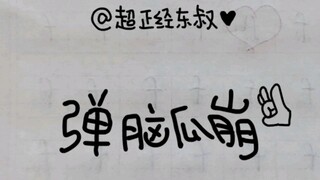 @超正经东叔
弹脑瓜崩